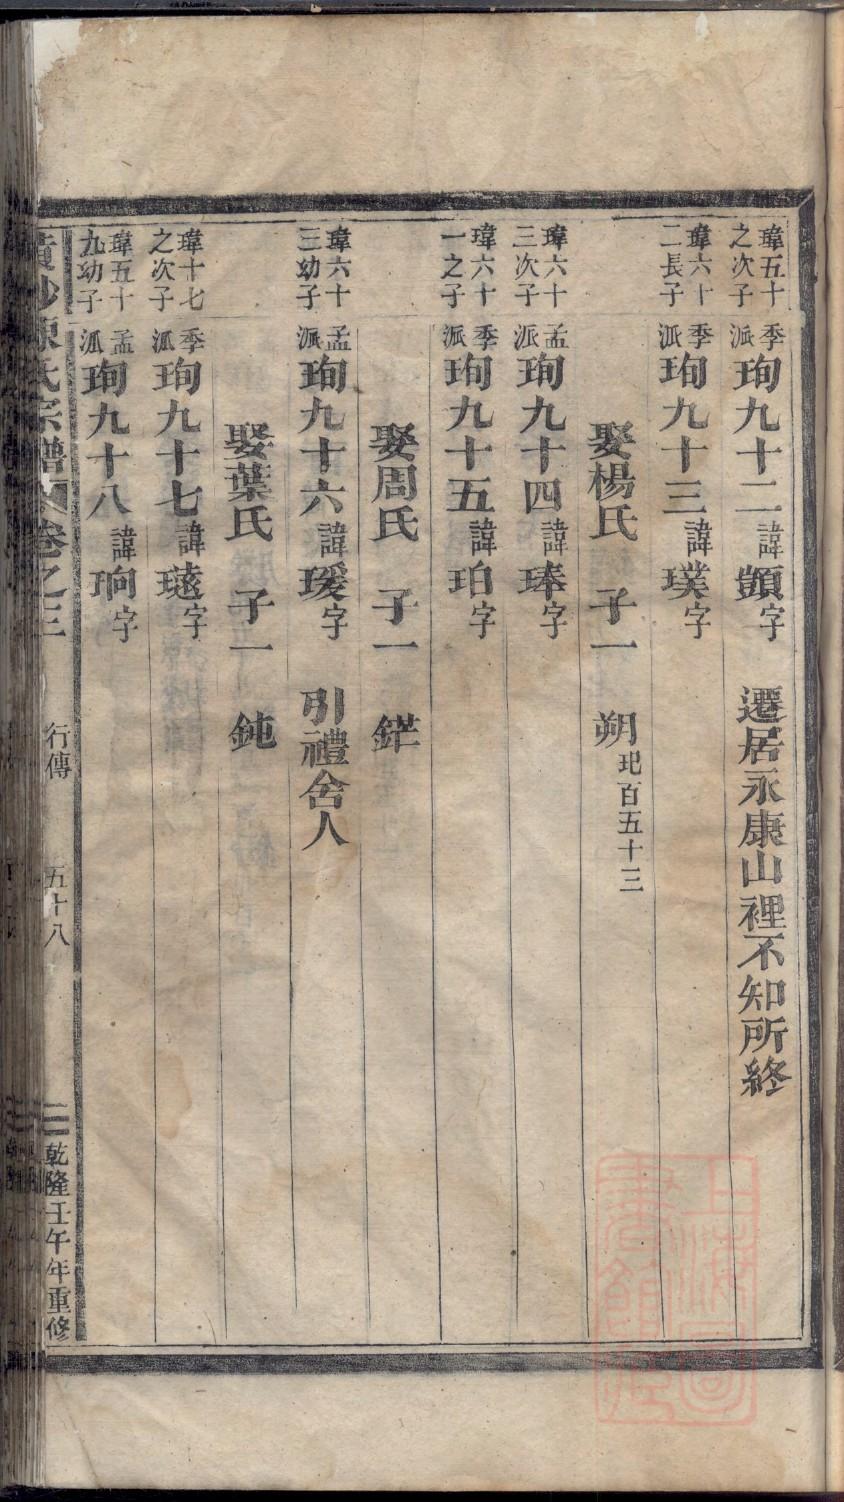 瑋五十之次子 季派 珣九十二 諱顗字 遷居永康山裡不知所終
瑋六十二長子 季派 珣九十三 諱璞字
娶楊氏 子一 朔 玘百五十三
瑋六十三次子 孟派 珣九十四 諱琫字
瑋六十一之子 季派 珣九十五 諱珀字
娶周氏 子一 鋩
瑋六十三幼子 孟派 珣九十六 諱瑗字 引禮舍人
娶葉氏 子一 鈍
瑋十七之次子 季派 珣九十七 諱字
瑋五十九幼子 孟派 珣九十八 諱珦字
氏宗譜 卷之三 行傳 五十八 乾隆壬午年重修
上海圖書館藏